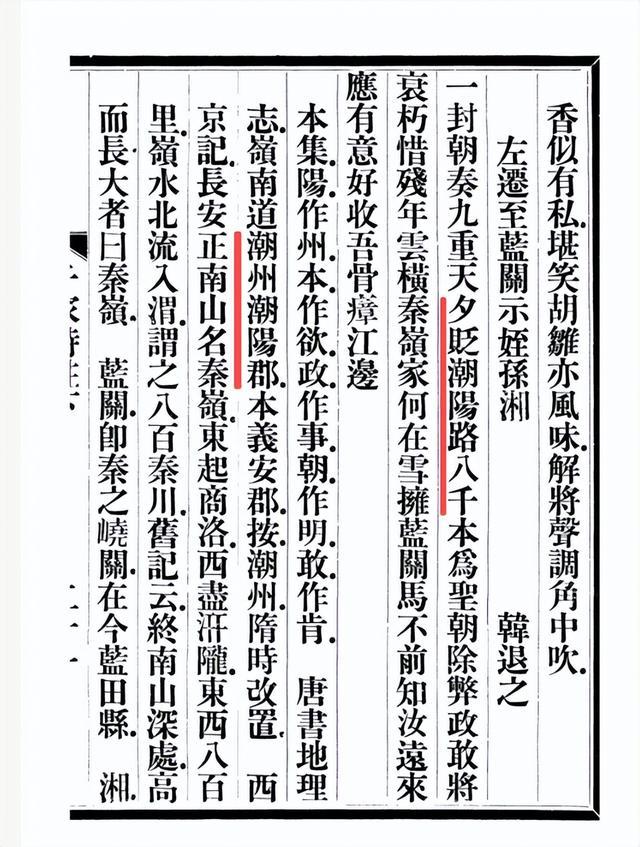 香似有私堪笑胡雛亦風味解將聲調角中吹
左遷至藍關示姪孫湘 韓退之
一封朝奏九重天夕貶潮陽路八千本爲聖朝除弊政敢將
衰朽惜殘年雲橫秦嶺家何在雪擁藍關馬不前知汝遠來
應有意好收吾骨瘴江邊
本集陽作州本作欲政作事朝作明敢作肯 唐書地理
志嶺南道潮州潮陽郡本義安郡按潮州隋時改置 西
京記長安正南山名秦嶺東起商洛西盡汧隴東西八百
里嶺水北流入渭謂之八百秦川舊記云終南山深處高
而長大者曰秦嶺 藍關卽秦之嶢關在今藍田縣 湘